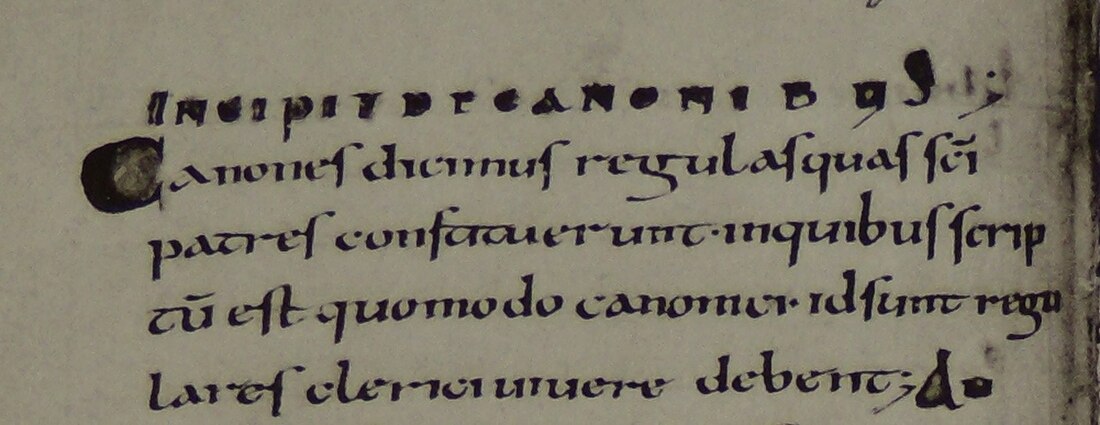 INCIPIT DE CANONIBUS;
Canones dicimus regulas quas scī
patres constituerunt· inquibus scrip
tū est quomodo canonici· id sunt regu
lares clerici uiuere debent; Do